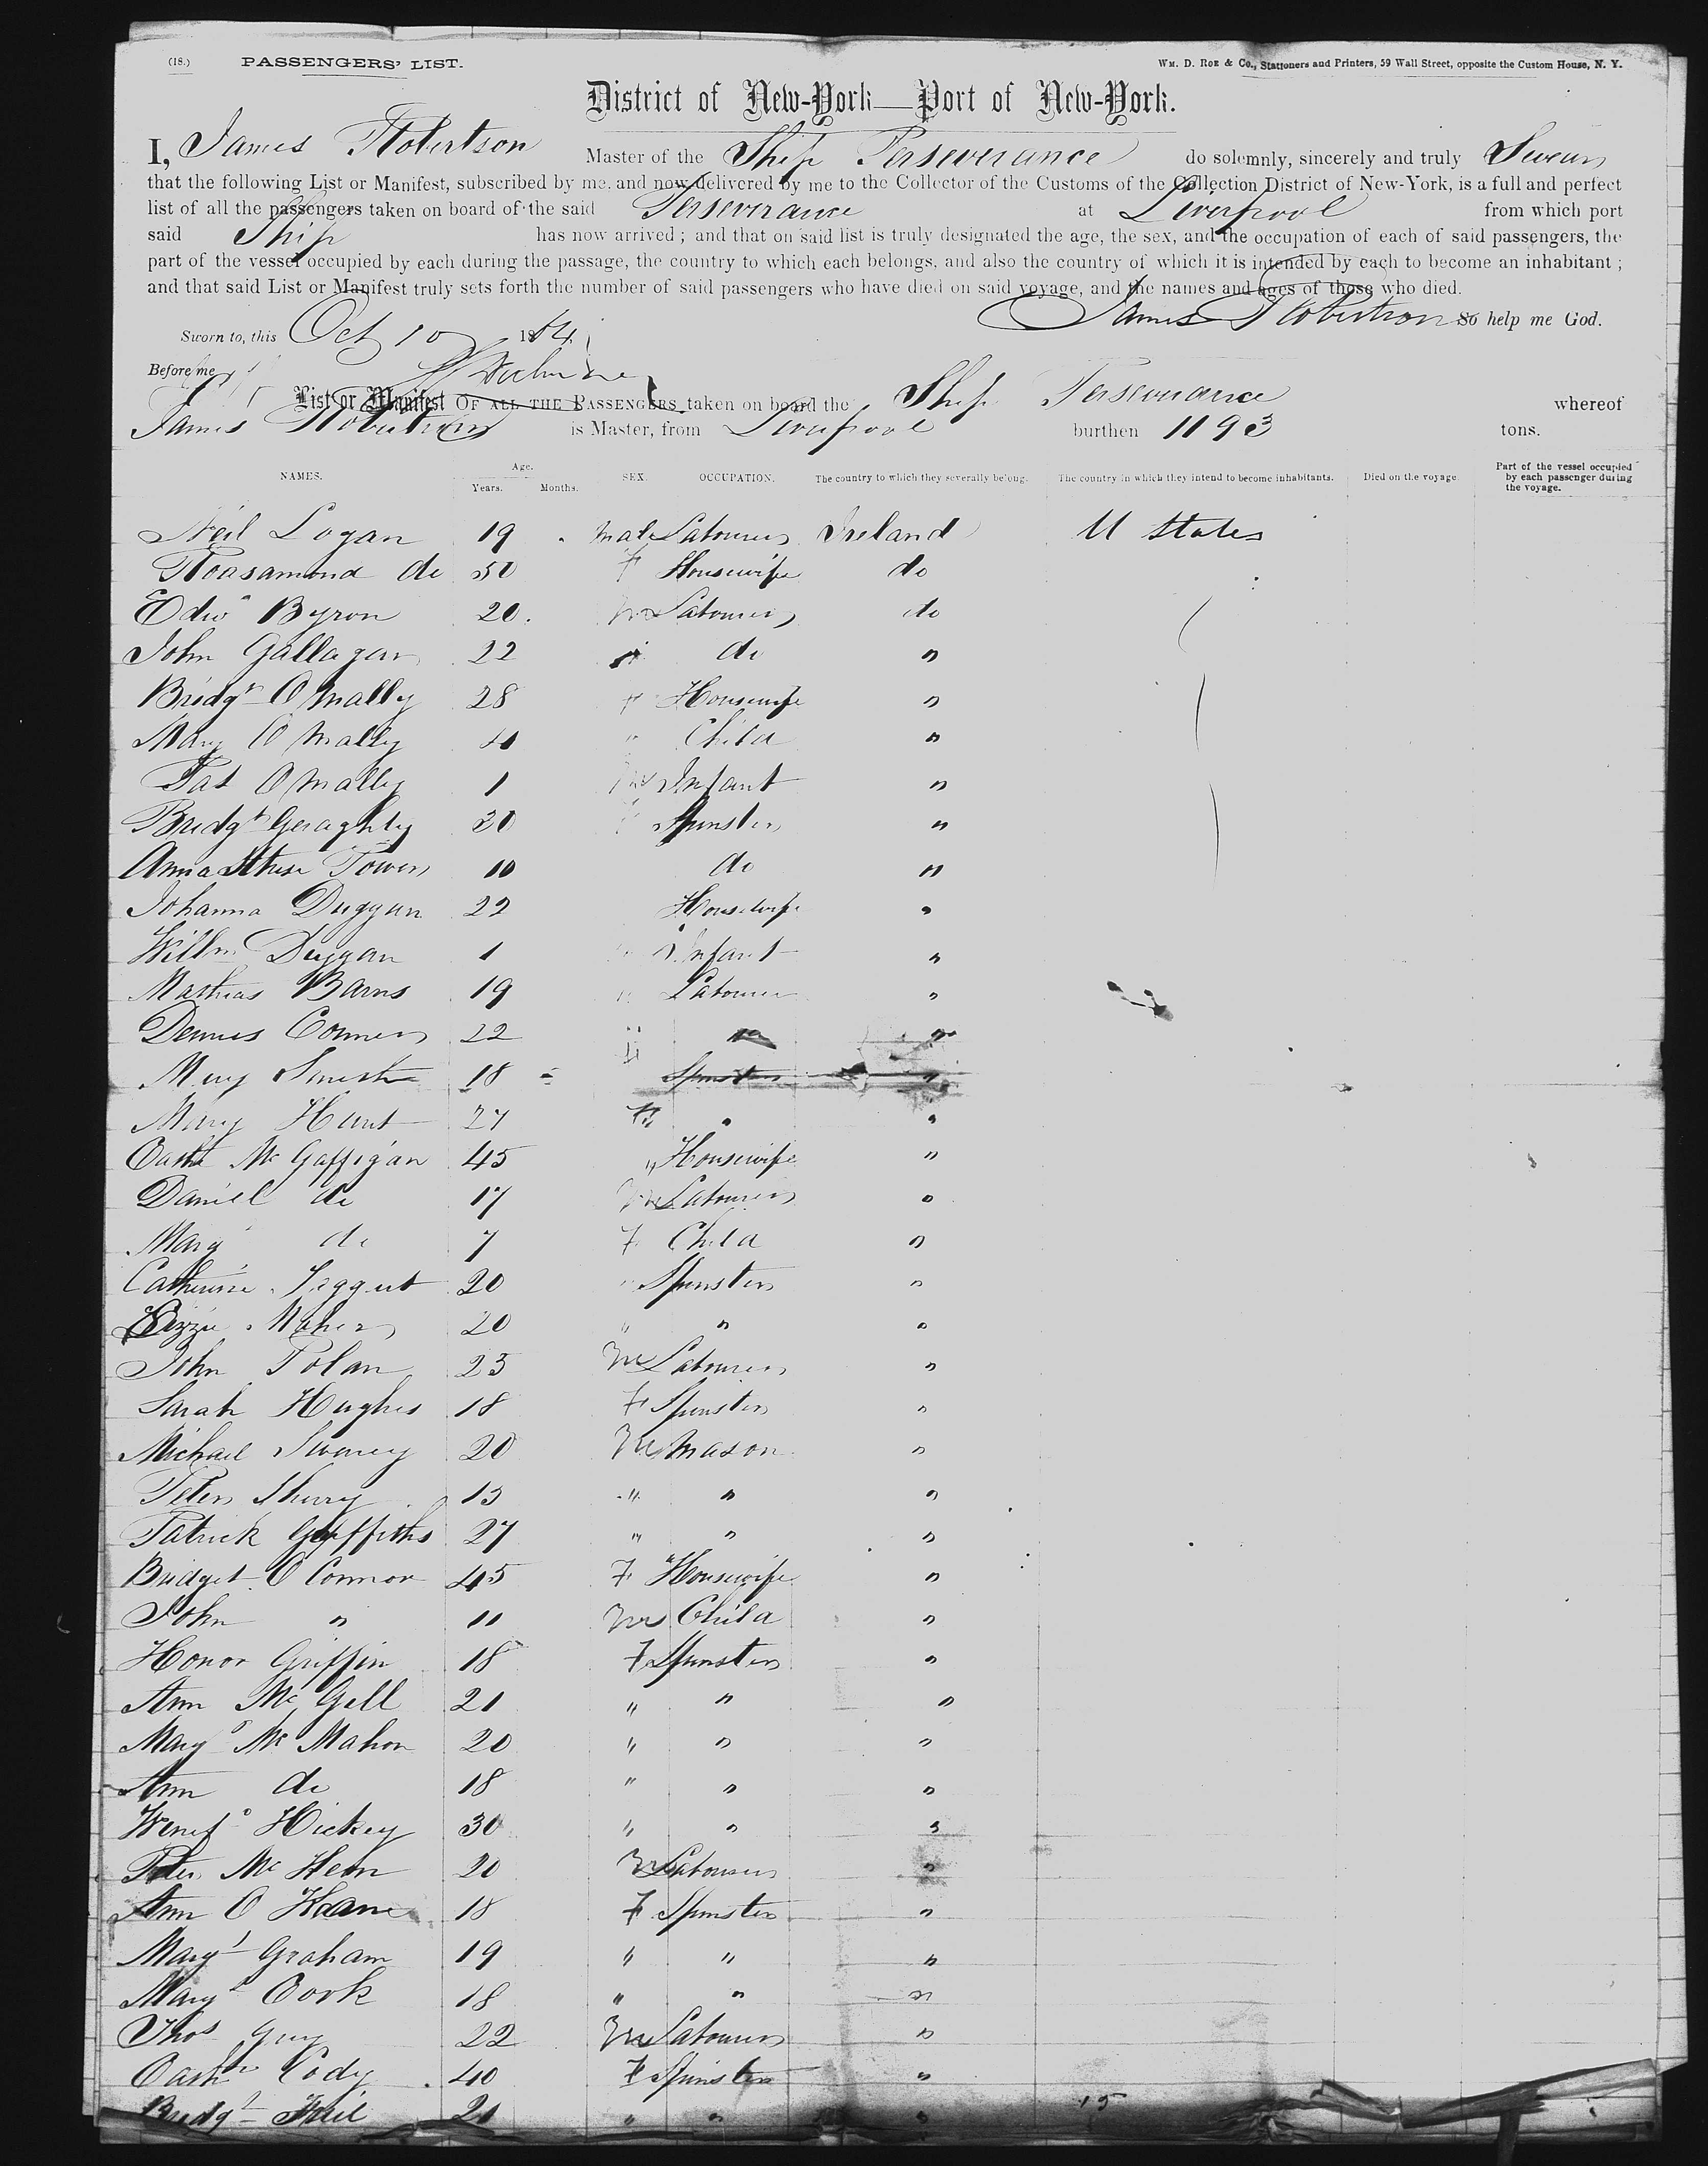 (18.) PASSENGERS' LIST. WM. D. ROE & Co., Stationers and Printers, 59 Wall Street, opposite the Custom House, N. Y.
District of New-York—Port of New-York.
I, James Robertson Master of the Ship Perseverance do solemnly, sincerely and truly Swear
that the following List or Manifest, subscribed by me, and now delivered by me to the Collector of the Customs of the Collection District of New-York, is a full and perfect
list of all the passengers taken on board of the said Perseverance at Liverpool from which port
said Ship has now arrived; and that on said list is truly designated the age, the sex, and the occupation of each of said passengers, the
part of the vessel occupied by each during the passage, the country to which each belongs, and also the country of which it is intended by each to become an inhabitant;
and that said List or Manifest truly sets forth the number of said passengers who have died on said voyage, and the names and ages of those who died.
James Robertson So help me God.
Sworn to, this Oct 10 1864
Before me
List or Manifest OF ALL THE PASSENGERS taken on board the Ship Perseverance whereof
James Robertson is Master, from Liverpool burthen 1193 tons.
NAMES. Age. Years. Months. SEX. OCCUPATION. The country to which they severally belong. The country in which they intend to become inhabitants. Died on the voyage. Part of the vessel occupied by each passenger during the voyage.
Neil Logan 19 male Labourer Ireland U States
Roasamond do 50 F Housewife do
Edwd Byron 20 M Labourer do
John Gallagar 22 " do "
Bridgt O Mally 28 " Housewife "
Mary O Mally 4 " Child "
Pat O Mally 1 M Infant "
Bridgt Geraghty 20 " Spinster "
Anna Power 10 do "
Johanna Duggan 22 Housewife "
Willm Duggan 1 " Infant "
Mathias Barns 19 " Labourer "
Dennis Conners 22 " "
Mary 18 Spinster "
Mary Hunt 27 F " "
Cath Mc Gaffigan 45 " Housewife "
Daniel do 17 M Labourer "
Mary do 7 F Child "
Catherine Taggert 20 " Spinster "
Lizzie Maher 20 " " "
John Polan 23 M Labourer "
Sarah Hughes 18 F Spinster "
Michael Sweney 20 M Mason "
Peter Shurry 13 " " "
Patrick Griffiths 27 " " "
Bridget O Connor 45 F Housewife "
John " 11 M Child "
Honor Griffin 18 F Spinster "
Ann Mc Gill 21 " " "
Mary Mc Mahon 20 " " "
Ann do 18 " " "
Wenefd Hickey 30 " " "
Peter Mc 20 M Labourer "
Ann O Kane 18 F Spinster "
Margt Graham 19 " " "
Mary Cork 18 " " "
Thos Guy 22 M Labourer "
Cathn Cody 40 F Spinster "
Bridgt 21 " " " 15